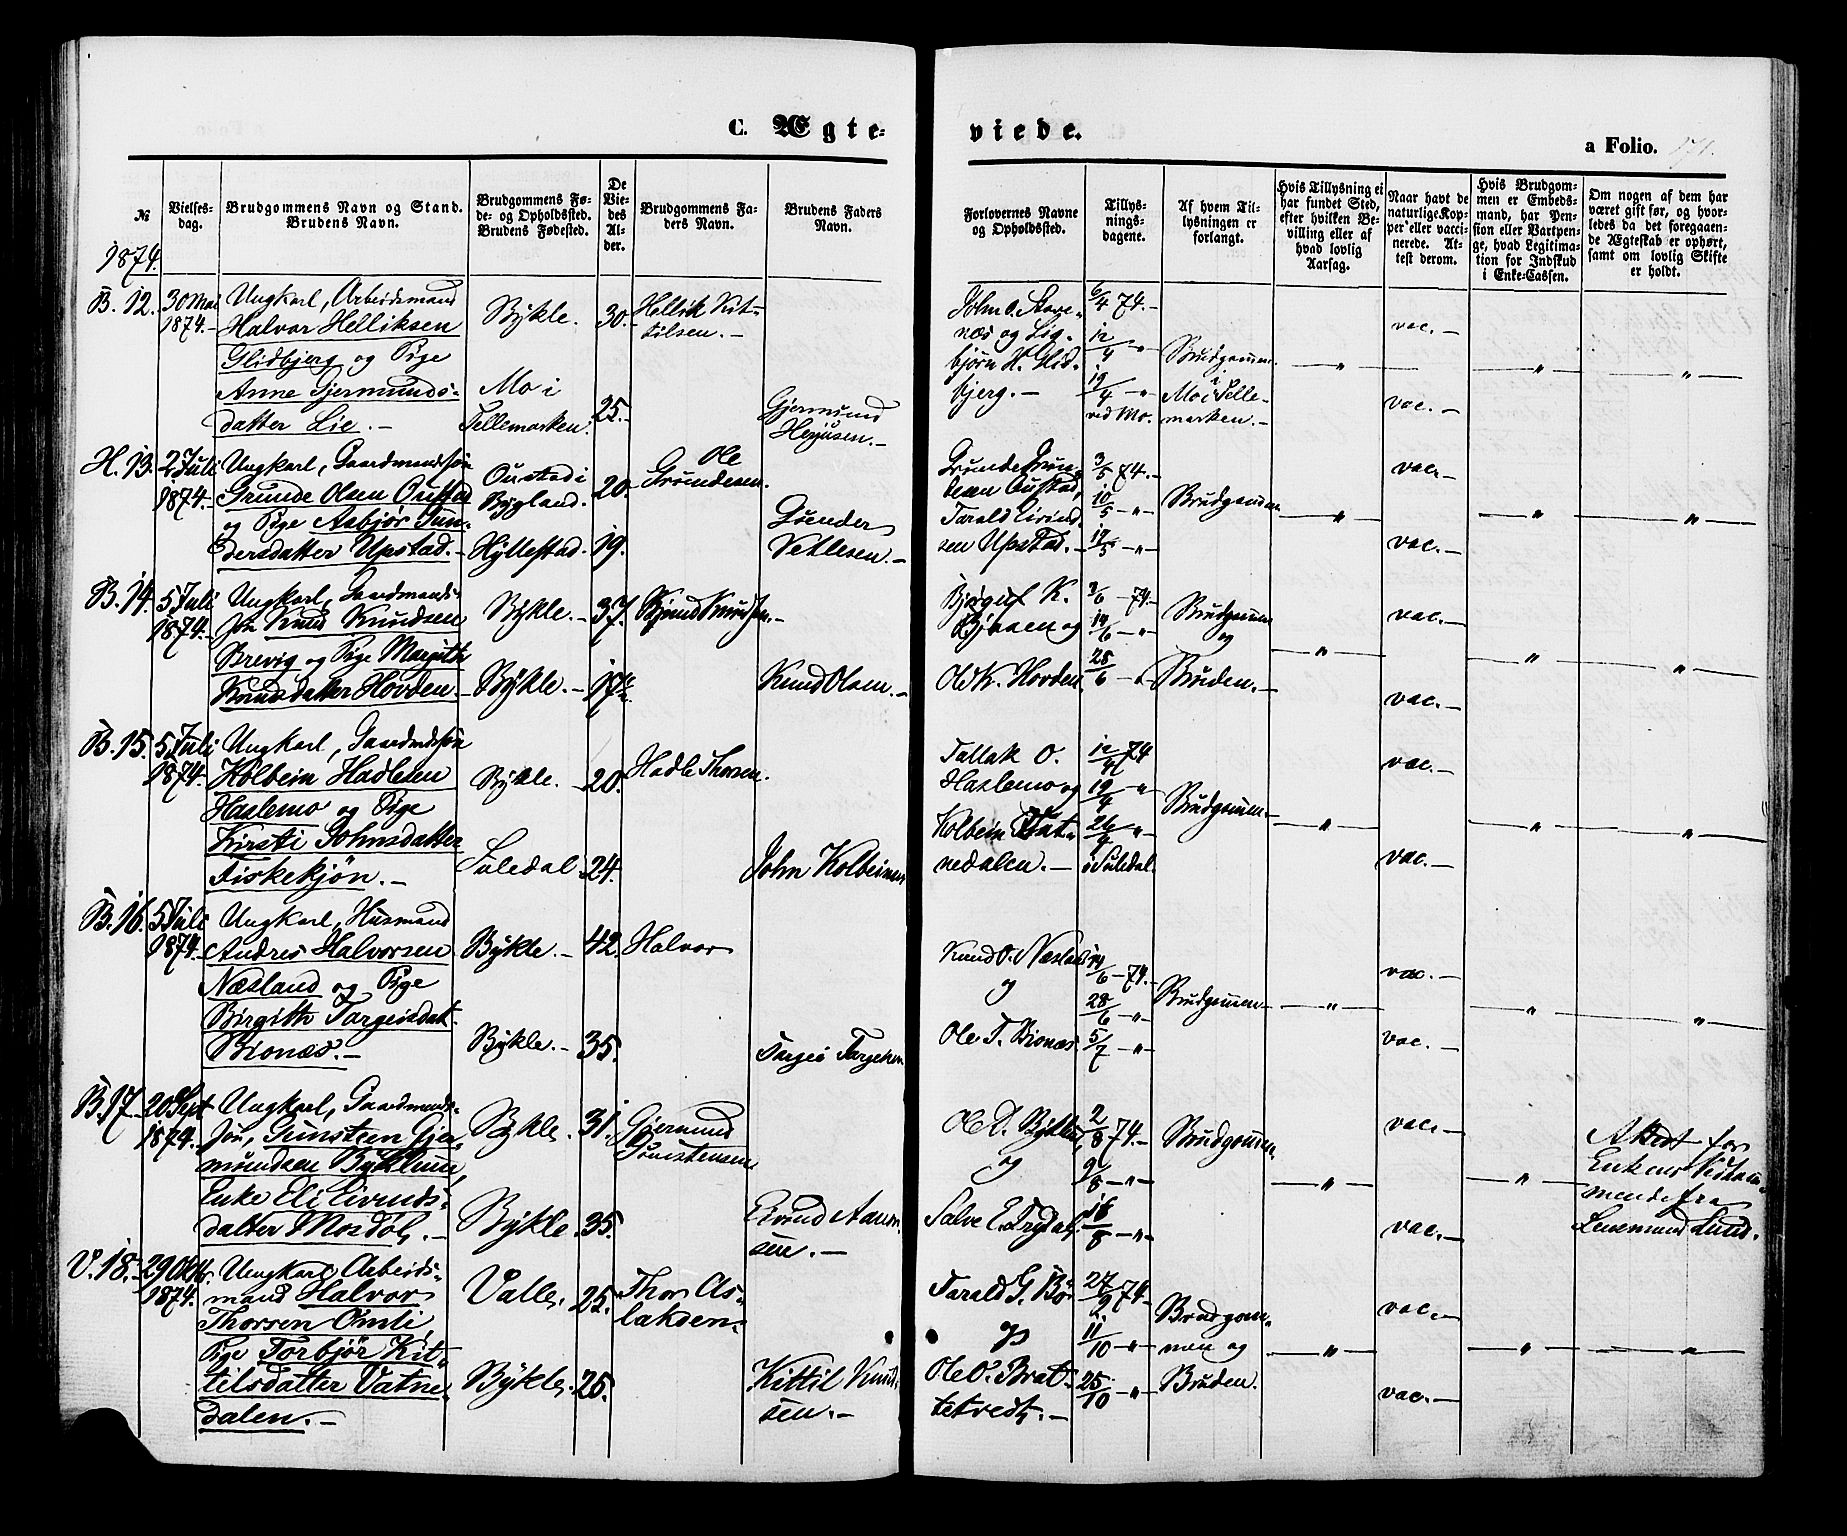 C. Ægte-
viede.
a Folio. 171.
№
Vielses-
dag.
Brudgommens Navn og Stand.
Brudens Navn.
Brudgommens Fø-
de- og Opholdssted.
Brudens Fødested.
De
Vie-
des
Al-
der.
Brudgommens Fa-
ders Navn.
Brudens Faders
Navn.
Forlovernes Navne
og Opholdssted.
Tillys-
nings-
dagene.
Af hvem Til-
lysningen er
forlangt.
Hvis Tillysning ei
har fundet Sted,
efter hvilken Be-
villing eller af
hvad lovlig
Aarsag.
Naar havt de
naturlige Kop-
per eller vacci-
nerede. At-
test derom.
Hvis Brudgom-
men er Embeds-
mand, har Pen-
sion eller Vartpen-
ge, hvad Legitima-
tion for Indskud
i Enke-Cassen.
Om nogen af dem har
været gift før, og hvor-
ledes da det foregaaen-
de Ægteskab er ophørt,
samt om lovlig Skifte
er holdt.
1874.
B. 12.
30 Mai
1874.
Ungkarl, Arbeidsmand
Halvor Helliksen
Glidbjerg og Pige
Anne Gjermunds-
datter Lie.
Bykle.
Mo i
Tellemarken.
30.
25.
Hellik Kit-
tilsen.
Gjermund
Herjusen.
John O. Stave-
næs og Lig-
bjørn H. Glid-
bjerg.
6/4 74.
12/4 "
19/4 "
ved Mo.
Brudgommen
i
Mo i Telle-
marken.
"
vac.
vac.
"
"
H. 13.
2 Juli
1874.
Ungkarl, Gaardmandssøn
Grunde Olsen Oustad
og Pige Asbjør Gun-
dersdatter Upstad.
Oustad i
Bygland.
Hyllestad.
20.
19.
Ole
Grundesen.
Gunder
Vetlesen.
Grunde Grun-
desen Oustad,
Tarald Eivind-
sen Upstad.
3/5 74.
10/5 "
17/5 "
Brudgommen
"
vac.
vac.
"
"
B. 14.
5 Juli
1874.
Ungkarl, Gaardmands-
søn Knud Knudsen
Brevig og Pige Margith
Knudsdatter Hovden.
Bykle.
Bykle.
37.
Knud Olsen.
Bjorguf K.
Bjaaen og
Ol K. Hovden.
/6 74.
14/6 "
28/6 "
Brudgommen
og
Bruden.
"
vac.
vac.
"
"
B. 15.
5 Juli
1874.
Ungkarl, Gaardmdssøn
Kolbein Hadlesen
Haslemo og Pige
Kirsti Johnsdatter
Fiskekjøn.
Bykle.
Suledal
20.
24.
Hadle Thorsen.
John Kolbeinsen
Tallak O.
Haslemo og
Kolbein Vat-
nedalen.
12/4 74
19/4 "
26/4 "
i Suledal.
Brudgommen.
"
vac.
vac.
"
"
B. 16.
5 Juli
1874.
Ungkarl, Husmand
Andres Halvorsen
Næsland og Pige
Birgith Targeisdat.
Bionæs.
Bykle.
Bykle.
42.
35.
Halvor
Targei Targeisen
Knud O. Næsland
og
Ole T. Bionæs
14/6 74.
28/6 "
5/7 "
Brudgommen
"
vac.
vac.
"
"
B. 17.
20 Sept
1874.
Ungkarl, Gaardmands-
søn, Gunsteen Gjer-
mundsen Byklum,
Enke Eli Eivinds-
datter Mosdøl.
Bykle.
Bykle
31.
35.
Gjermund
Gunstensen
Eivind Aaven-
sen.
Ole D. Bykle,
og
Salve E. Trydal.
2/8 74.
9/8 "
16/8 "
Brudgommen.
"
vac.
vac.
"
Attest for
Enkens Vedkom-
mende fra
Lensmand Lund.
V. 18.
29 Oktbr.
1874.
Ungkarl Arbeids-
mand Halvor
Thorsen Omli
Pige Torbjør Kit-
tilsdatter Vatne-
dalen.
Valle,
Bykle.
25.
25.
Thor As-
laksen.
Kittil Knud-
sen.
Tarald G. Bø
og
Ole O. Brat-
tetvedt.
27/9 74.
11/10 "
25/10 "
Brudgom-
men og
Bruden.
"
vac.
vac.
"
"